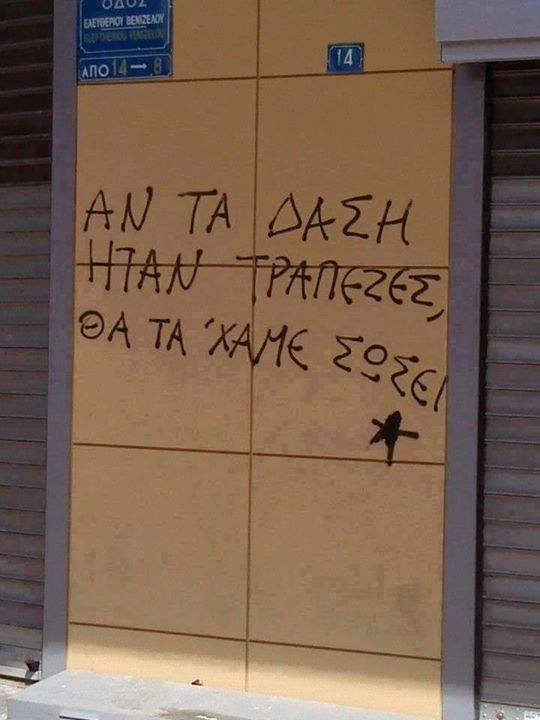 ΟΔΟΣ
ΕΛΕΥΘΕΡΙΟΥ ΒΕΝΙΖΕΛΟΥ
ELEFTHERIOU VENIZELOU
ΑΠΟ 14 → 8
14
ΑΝ ΤΑ ΔΑΣΗ
ΗΤΑΝ ΤΡΑΠΕΖΕΣ,
ΘΑ ΤΑ 'ΧΑΜΕ ΣΩΣΕΙ